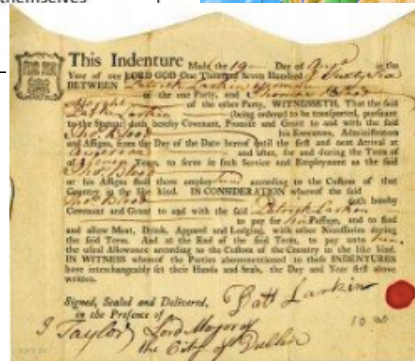 themselves
This Indenture Made the 19 Day of in the
Year of our LORD GOD One Thousand Seven Hundred & Sixty
BETWEEN Patrick Larkin
of the one Party, and Thomas Blood
of the other Party, WITNESSETH, That the said
Patk Larkin (being ordered to be transported, pursuant
to the Statute) doth hereby Covenant, Promise and Grant to and with the said
Thos Blood his Executors, Administrators
and Assigns, from the Day of the Date hereof until the first and next Arrival at
and after, for and during the Term of
Seven Years, to serve in such Service and Employment as the said
Thos Blood
or his Assigns shall there employ according to the Custom of that
Country in the like kind. IN CONSIDERATION whereof the said
Thos Blood doth hereby
Covenant and Grant to and with the said Patrick Larkin
to pay for his Passage, and to find
and allow Meat, Drink, Apparel and Lodging, with other Necessaries during
the said Term. And at the End of the said Term, to pay unto him
the usual Allowance according to the Custom of the Country in the like kind.
IN WITNESS whereof the Parties abovementioned to these INDENTURES
have interchangeably set their Hands and Seals, the Day and Year first above
written.
Signed, Sealed and Delivered,
in the Presence of
Patt Larkin
J Taylor Lord Mayor of
the City of Dublin